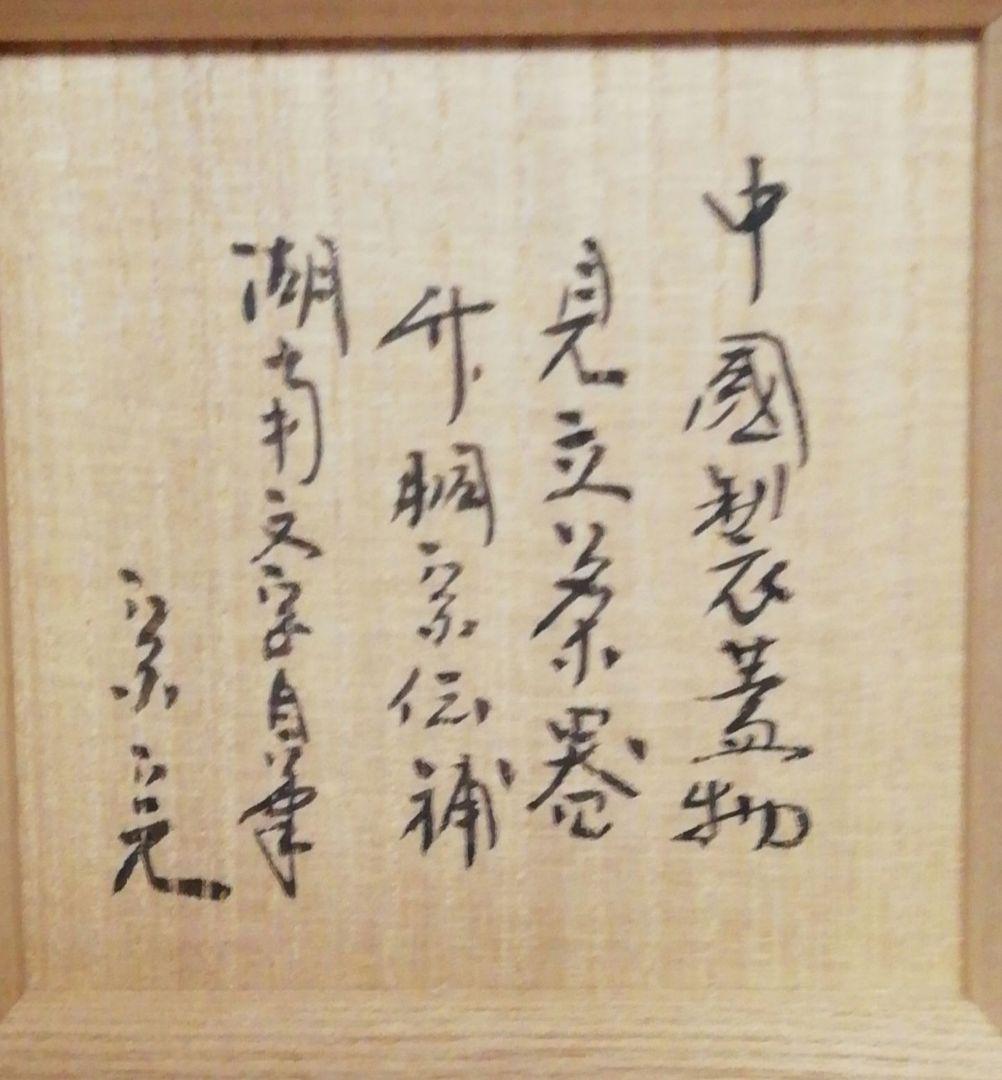 中國製蓋物
見立茶器
竹胴宗伝補
湖南文字自筆
宗完